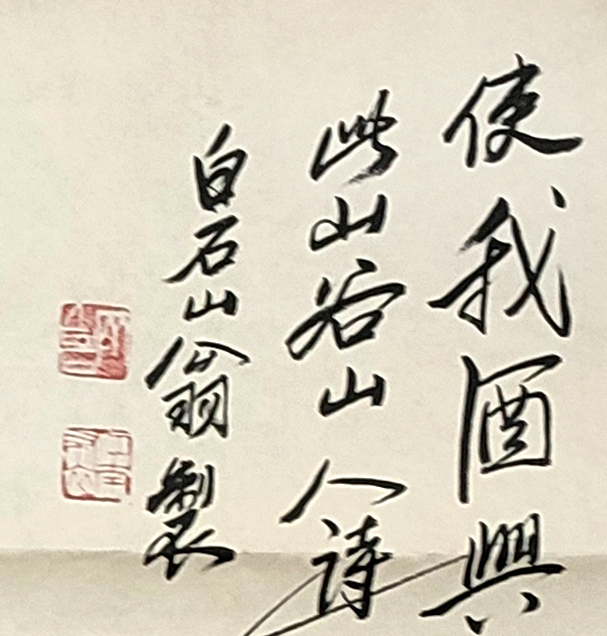 使我酒興
此山谷山人詩
白石山翁製